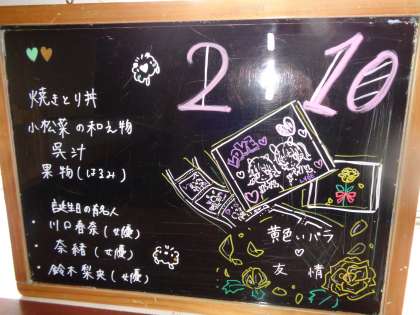 2 10
焼きとり丼
小松菜の和え物
呉汁
果物(はるみ)
誕生日の有名人
・川口春奈(女優)
・奈緒(女優)
・鈴木梨央(女優)
LOVE
黄色いバラ
友情